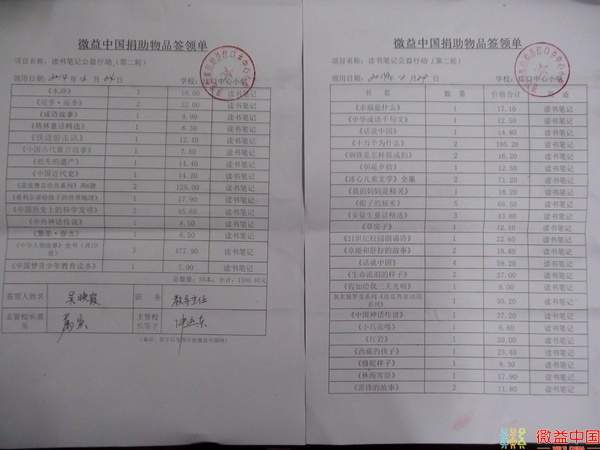 微益中国捐助物品签领单
项目名称：读书笔记公益行动（第二轮）
领用日期：2014年 月 日 学校： 口中心小学
《水浒》 1 18.00 读书笔记
2 32.00 读书笔记
《成语故事》 1 8.90 读书笔记
《格林童话精选》 1 8.30 读书笔记
《铁道游击队》 1 12.40 读书笔记
《中国古代寓言故事》 1 7.60 读书笔记
《祖先的遗产》 1 14.40 读书笔记
《中国近代史》 1 14.20 读书笔记
1 125.00 读书笔记
《希利尔讲给孩子的世界地理》 1 17.90 读书笔记
《中国历史上的科学发明》 2 45.60 读书笔记
《中外神话传说》 1 8.50 读书笔记
《繁星·春水》 1 6.50 读书笔记
3 477.90 读书笔记
《中华梦青少年教育读本》 1 7.90 读书笔记
签领人姓名 吴映霞 职务 教导主任
主管校长签字
微益中国捐助物品签领单
项目名称：读书笔记公益行动（第二轮）
领用日期： 学校： 口中心小学
书 名 数 量 价格合计 用 途
《幸福是什么》 1 17.10 读书笔记
《中华成语千句文》 1 12.50 读书笔记
《话说中国》 1 14.80 读书笔记
《十万个为什么》 2 105.20 读书笔记
《钢铁是怎样炼成的》 2 16.20 读书笔记
《朝花夕拾》 1 12.50 读书笔记
《冰心儿童文学》全集 2 71.20 读书笔记
《我的妈妈是精灵》 1 18.20 读书笔记
《帽子的秘密》 5 66.50 读书笔记
《安徒生童话精选》 3 43.80 读书笔记
《草房子》 1 12.10 读书笔记
《21世纪校园朗诵诗》 1 22.60 读书笔记
《卓娅和舒拉的故事》 1 18.20 读书笔记
《话说中国》 2 59.20 读书笔记
《生命流泪的样子》 2 27.00 读书笔记
《假如给我三天光明》 1 8.00 读书笔记
1 50.20 读书笔记
《中国神话传说》 1 37.20 读书笔记
《小兵张嘎》 1 6.20 读书笔记
《红岩》 1 20.00 读书笔记
《西藏的孩子》 1 23.40 读书笔记
《骆驼祥子》 1 8.30 读书笔记
《林海雪原》 1 17.90 读书笔记
《雷锋的故事》 2 11.80 读书笔记
微益中国